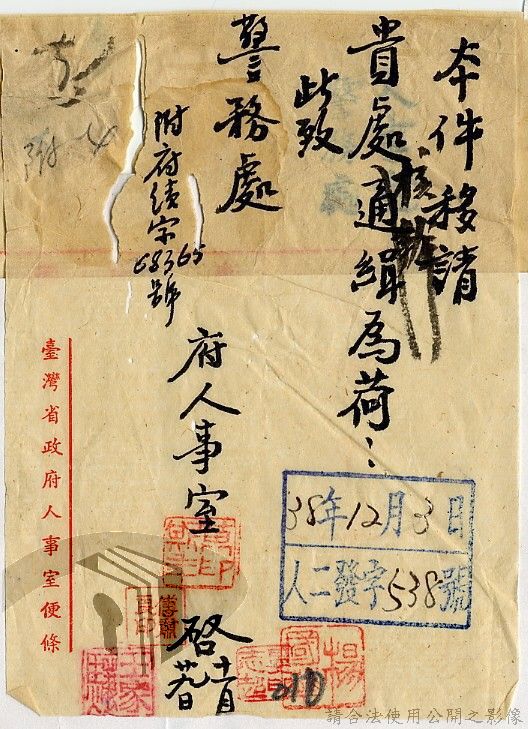 本件移請
核辦
貴處通緝為荷
此致
警務處
附府績字68365號
府人事室
啓
附4
38年12月3日
人二發字538號
臺灣省政府人事室便條
請合法使用公開之影像